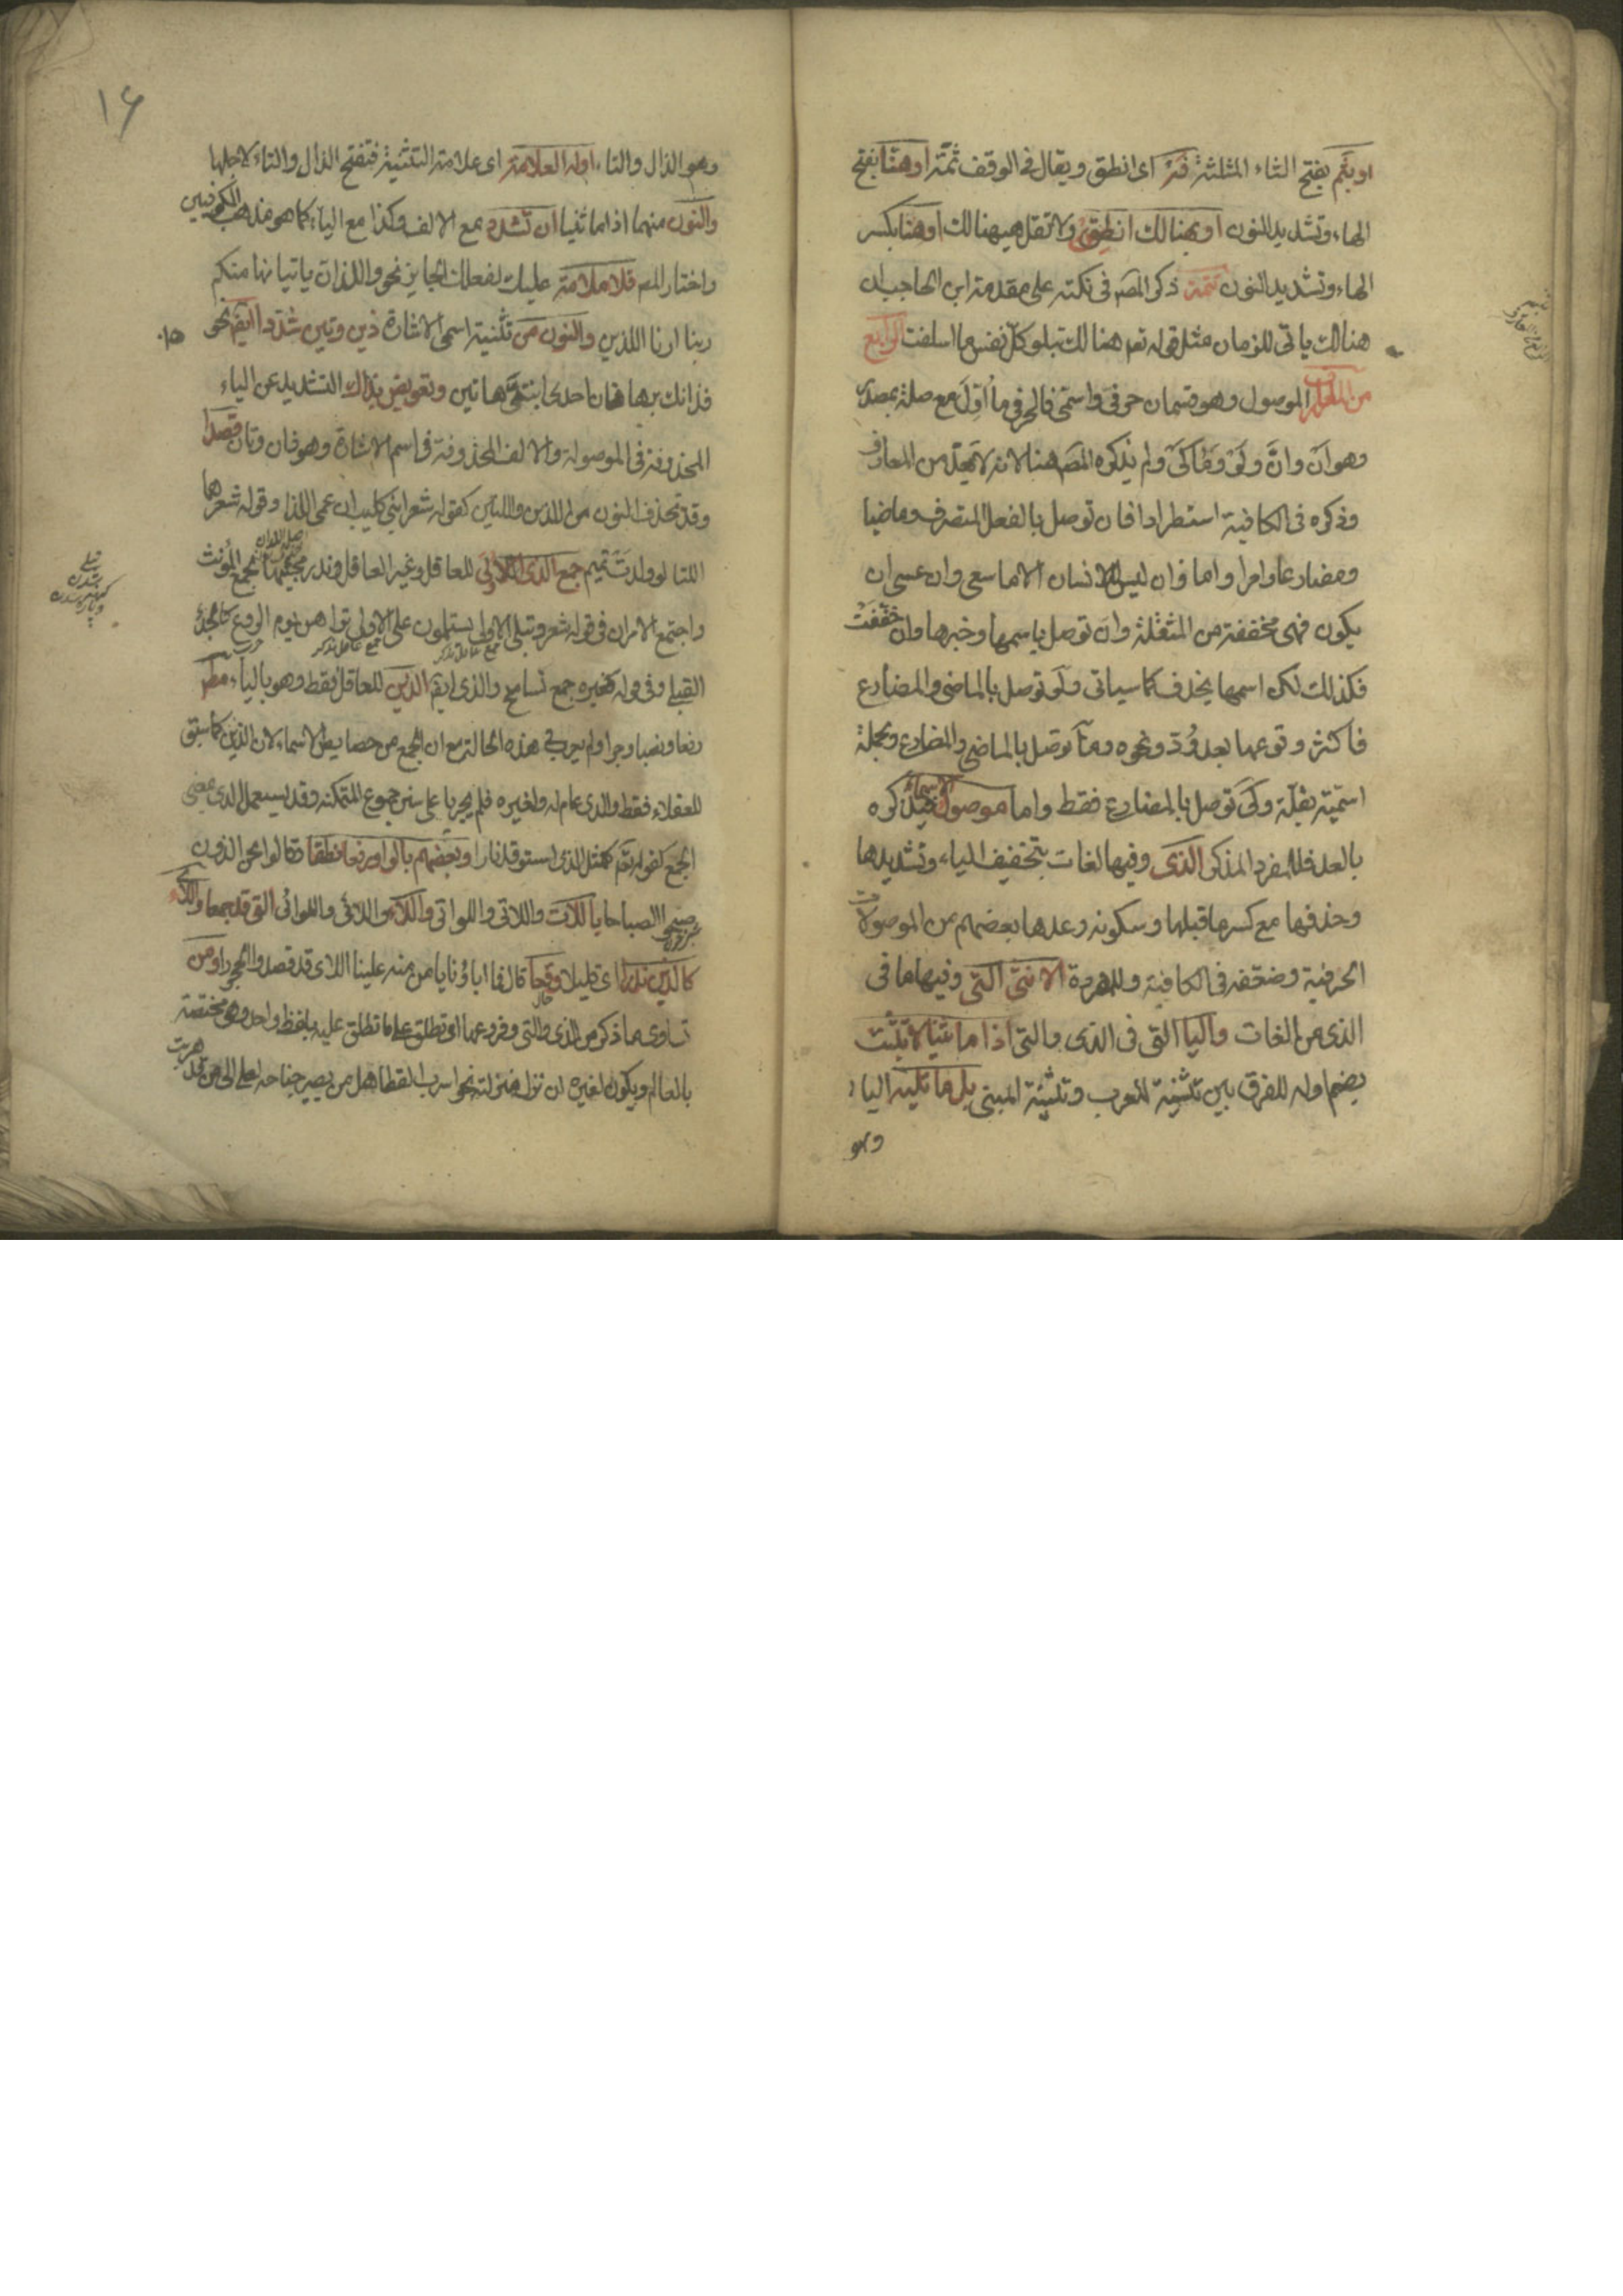 او بثم بفتح الثاء المثلثة فه اى انطق ويقال فى الوقف ثمّة او هنّا بفتح
الهاء وتشديد النون او بهنالك انطقن ولا تقل هيهنالك او هنّا بكسر
الهاء وتشديد النون تتمة ذكر المصم فى نكته على مقدمة ابن الحاجب ان
هنالك ياتى للزمان مثل قوله تعم هنالك تبلو كلّ نفس ما اسلفت الرابع
من المعارف الموصول وهو قسمان حرفىّ واسمىّ فالحرفى ما اُوّل مع صلته بمصدر
وهو ان وانّ ولو وما وكى ولم يذكره المصم هنا لانه لا يعدّ من المعارف
وذكره فى الكافية استطرادا فان توصل بالفعل المتصرف ماضيا
ومضارعا وامرا واما وان ليس للانسان الا ما سعى وان عسى ان
يكون فهى مخففة من المثقلة وانّ توصل باسمها وخبرها وان خفّفت
فكذلك لكن اسمها يحذف كما سياتى ولو توصل بالماضى والمضارع
فاكثر وقوعها بعد وُدّ ونحوه وما توصل بالماضى والمضارع وبجملة
اسميّة بقلّة وكى توصل بالمضارع فقط واما موصول الاسماء فيذكره
بالعد فللمفرد المذكر الذى وفيها لغات بتخفيف الياء وتشديدها
وحذفها مع كسر ما قبلها وسكونه وعدها بعضهم من الموصولات
الحرفية وضعّفه فى الكافية وللمفردة الانثى التى وفيها ما فى
الذى من اللغات واليا التى فى الذى والتى اذا ما ثنّيا لا تثبت
بضم اوله للفرق بين تثنية المعرب وتثنية المبنى بل ما تليه الياء
وهو
١٦
وهو الذال والتاء اوله العلامة اى علامة التثنية فتفتح الذال والتاء لاجلها
والنون منهما اذا ما ثنيا ان تشدد مع الالف وكذا مع الياء كما هو مذهب الكوفيين
واختاره المصم فلا ملامة عليك لفعلك الجايز نحو واللذانّ ياتيانها منكم
ربنا ارنا اللذينّ والنون من تثنية اسمى الاشارة ذين وتين شدّدا ايضا نحو
فذانك برهانان احدى ابنتىّ هاتين وتعويض بذاك التشديد عن الياء
المحذوفة فى الموصول والالف المحذوفة فى اسم الاشارة وهو ذان وتان قصدا
وقد تحذف النون من اللذين واللتين كقوله شعر ابنى كليب ان عمى اللذا وقوله شعر هما
اللتا لو ولدت تميم جمع الذى الالى للعاقل وغير العاقل وندر مجيئها لجمع المؤنث
واجتمع الامران فى قوله شعر وتبلى الاولى يستلئمون على الاولى تراهن يوم الروع كالحدأ
القبل وفى قوله كغيره جمع تسامح والذى ايضا الذين للعاقل فقط وهو بالياء مطم
رفعا ونصبا وجرا ولم يعرب فى هذه الحالة مع ان الجمع من خصايص الاسماء لان الذين كما سبق
للعقلاء فقط والذى عام له ولغيره فلم يجريا على سنن جموع المتمكنة وقد يستعمل الذى بمعنى
الجمع كقوله تعم كمثل الذى استوقد نارا وبعضهم بالواو رفعا نطقا فقالوا نحن الذون
صبحوا الصباحا باللات واللاتى واللواتى واللاء واللائى واللوائى التى قد جمعا واللاء
كالذين نزرا اى قليلا وقعا قال فما اباؤنا بامن منه علينا اللاء قد مهدوا الحجورا ومن
تساوى ما ذكر من الذى والتى وفروعهما اى تطلق على ما تطلق عليه بلفظ واحد وهى مختصة
بالعالم ويكون لغيره ان نزل منزلته نحو اسرب القطا هل من يعير جناحه لعلى الى من قد هويت